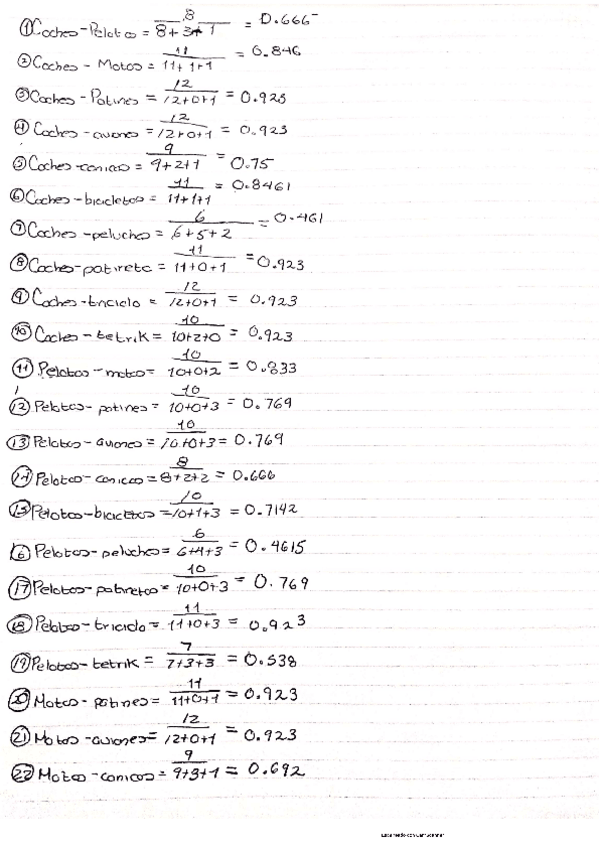 ① Coches - Pelotas = 8 / 8+3+1 = 0.666
② Coches - Motos = 11 / 11+1+1 = 0.846
③ Coches - Patines = 12 / 12+0+1 = 0.923
④ Coches - aviones = 12 / 12+0+1 = 0.923
⑤ Coches - canicas = 9 / 9+2+1 = 0.75
⑥ Coches - bicicletas = 11 / 11+1+1 = 0.8461
⑦ Coches - peluches = 6 / 6+5+2 = 0.461
⑧ Coches - patineta = 11 / 11+0+1 = 0.923
⑨ Coches - triciclo = 12 / 12+0+1 = 0.923
⑩ Coches - tetrik = 10 / 10+2+0 = 0.923
⑪ Pelotas - motos = 10 / 10+0+2 = 0.833
⑫ Pelotas - patines = 10 / 10+0+3 = 0.769
⑬ Pelotas - aviones = 10 / 10+0+3 = 0.769
⑭ Pelotas - canicas = 8 / 8+2+2 = 0.666
⑮ Pelotas - bicicletas = 10 / 10+1+3 = 0.7142
⑯ Pelotas - peluches = 6 / 6+4+3 = 0.4615
⑰ Pelotas - patinetas = 10 / 10+0+3 = 0.769
⑱ Pelotas - triciclo = 11 / 11+0+3 = 0.923
⑲ Pelotas - tetrik = 7 / 7+3+3 = 0.538
⑳ Motos - patines = 11 / 11+0+1 = 0.923
㉑ Motos - aviones = 12 / 12+0+1 = 0.923
㉒ Motos - canicas = 9 / 9+3+1 = 0.692
Escaneado con CamScanner